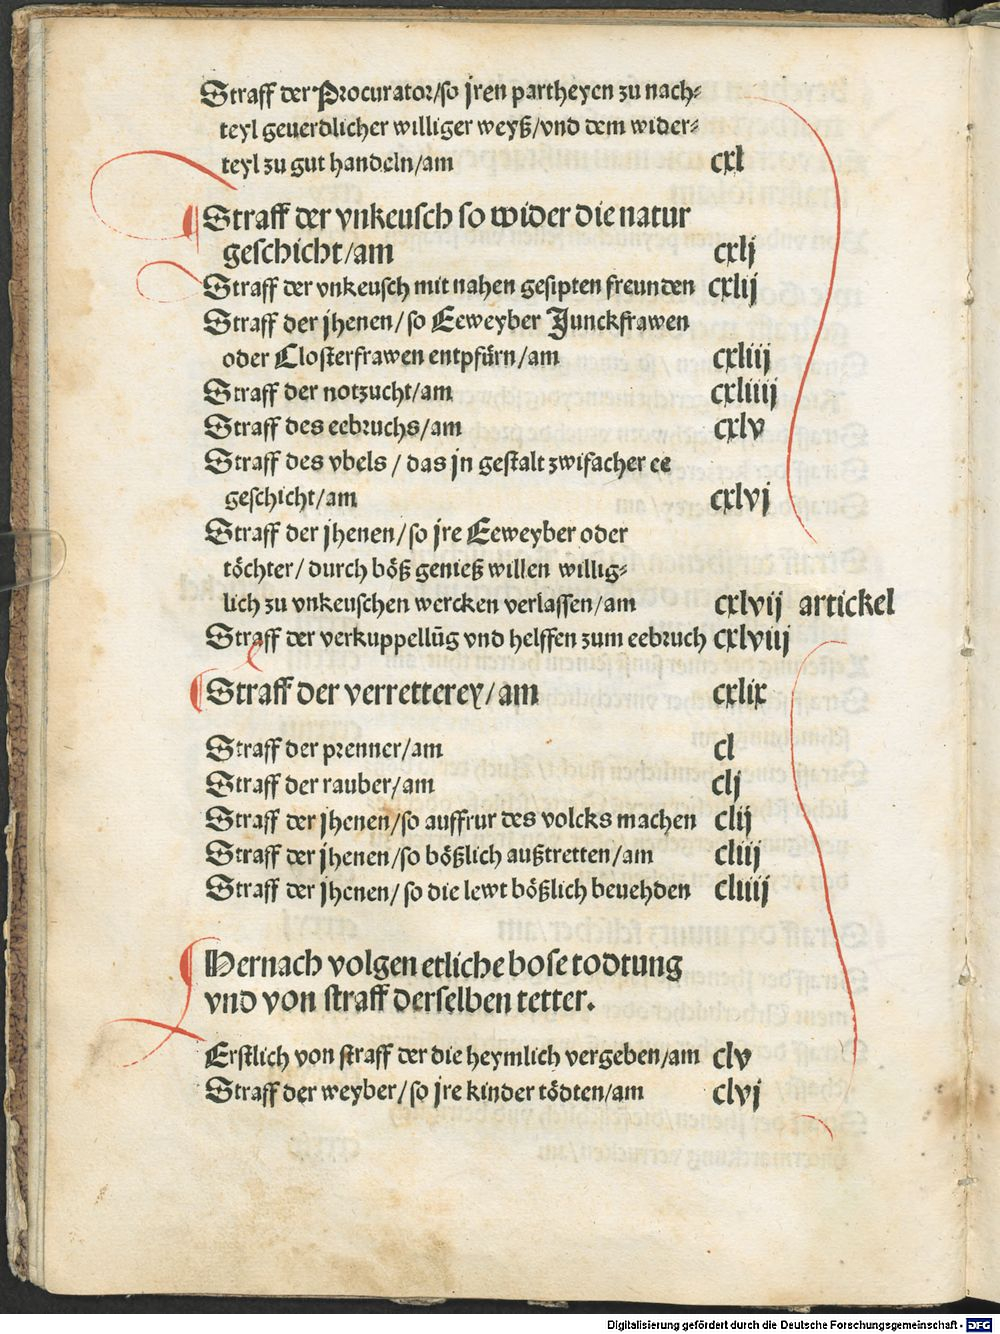 Straff der Procurator/so jren partheyen zu nach⸗
teyl geuerdlicher williger weyß/vnd dem wider⸗
teyl zu gut handeln/am cxl
Straff der vnkeusch so wider die natur
geschicht/am cxlj
Straff der vnkeusch mit nahen gesipten freunden cxlij
Straff der jhenen/so Eeweyber Junckfrawen
oder Closterfrawen entpfürn/am cxliij
Straff der notzucht/am cxliiij
Straff des eebruchs/am cxlv
Straff des vbels / das jn gestalt zwifacher ee
geschicht/am cxlvj
Straff der jhenen/so jre Eeweyber oder
töchter/ durch böß genieß willen willig⸗
lich zu vnkeuschen wercken verlassen/am cxlvij artickel
Straff der verkuppellūg vnd helffen zum eebruch cxlviij
Straff der verretterey/am cxlix
Straff der prenner/am cl
Straff der rauber/am clj
Straff der jhenen/so auffrur des volcks machen clij
Straff der jhenen/so bößlich außtretten/am cliij
Straff der jhenen/so die lewt bößlich beuehden cliiij
Hernach volgen etliche bose todtung
vnd von straff derselben tetter.
Erstlich von straff der die heymlich vergeben/am clv
Straff der weyber/so jre kinder tödten/am clvj
Digitalisierung gefördert durch die Deutsche Forschungsgemeinschaft - DFG